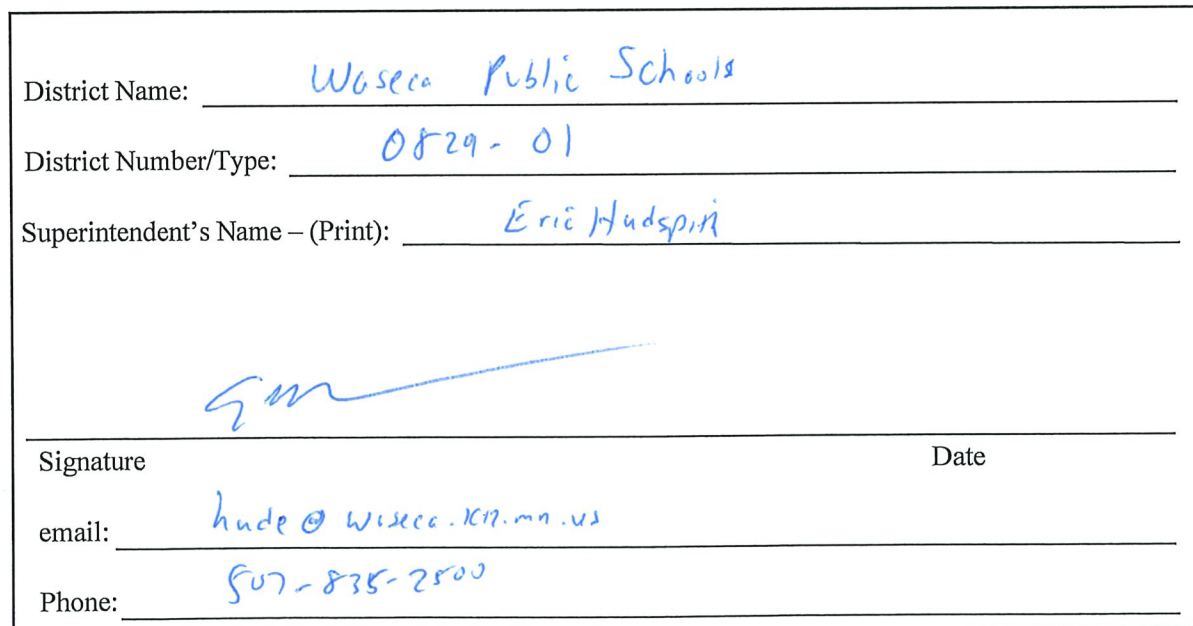 District Name: Waseca Public Schools
District Number/Type: 0829-01
Superintendent's Name – (Print): Eric Hudspith
Signature Date
email: hude@waseca.k12.mn.us
Phone: 507-835-2500